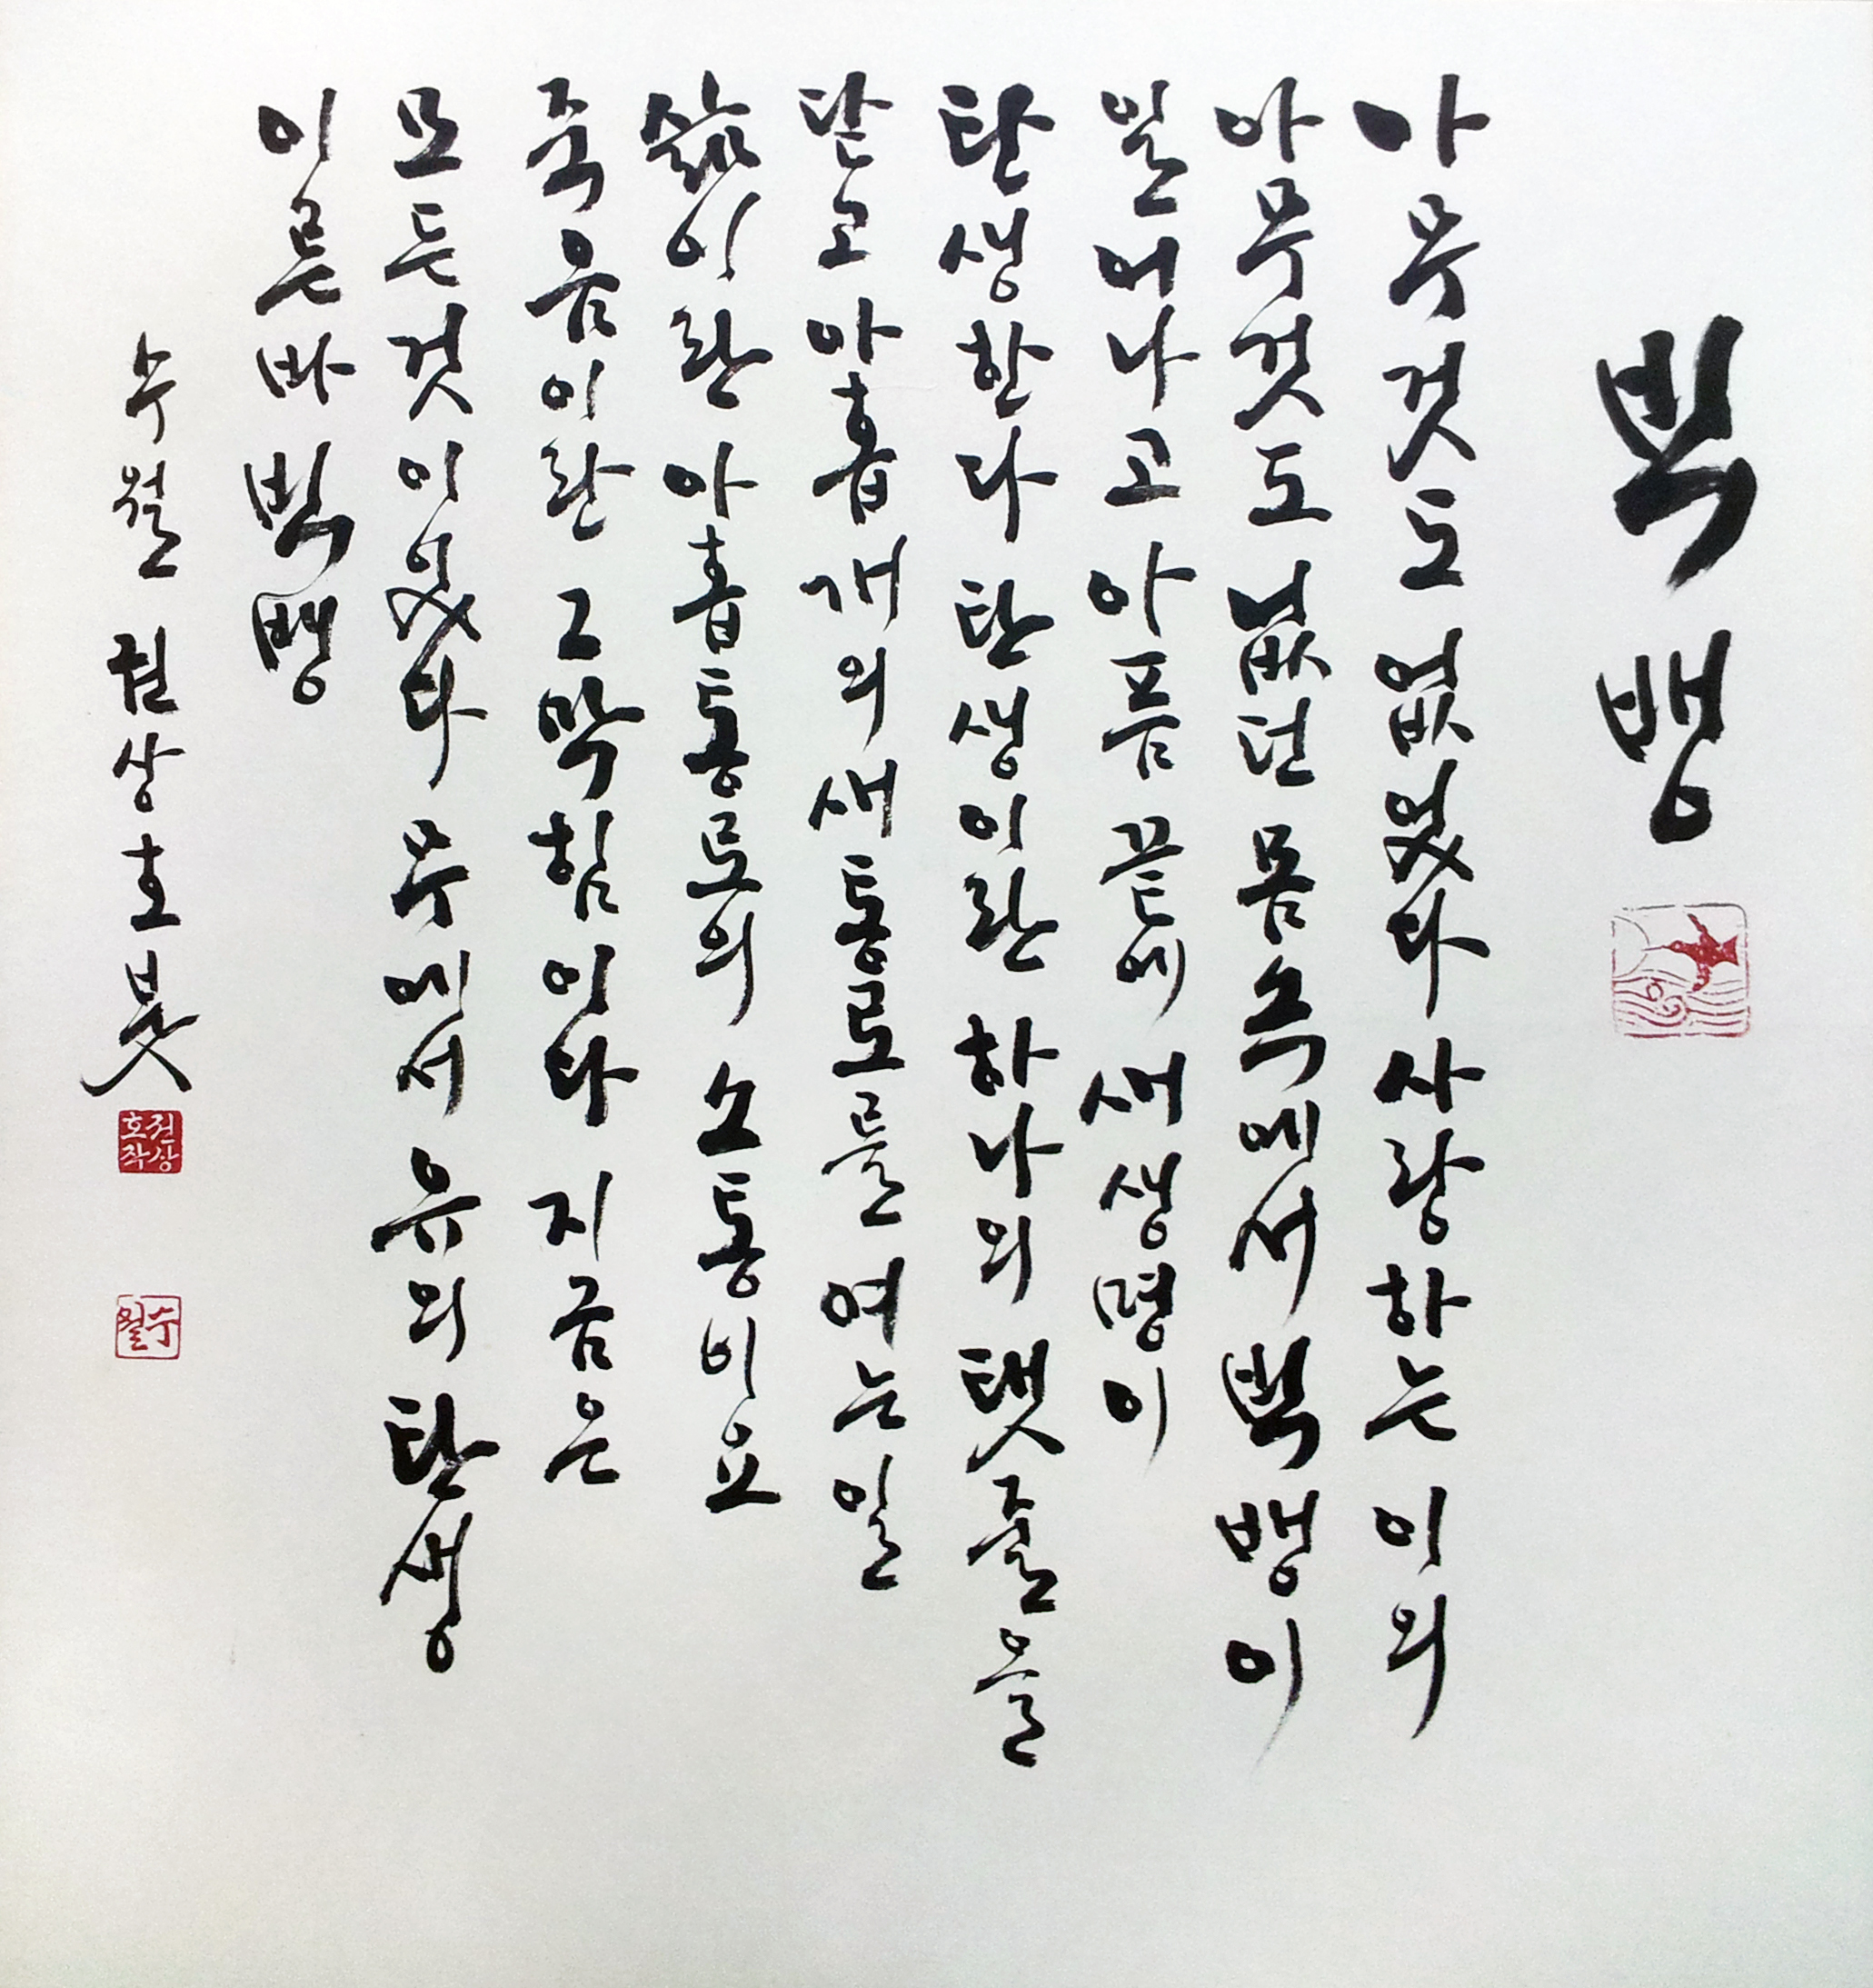 빅뱅
아무것도 없었다 사랑하는 이의
아무것도 없던 몸 속에서 빅뱅이
일어나고 아픔 끝에 새 생명이
탄생한다 탄생이란 하나의 탯줄을
닫고 아홉 개의 새 통로를 여는 일
삶이란 아홉 통로의 소통비요
죽음이란 그 막힘이다 지금은
모든 것이 있다 무에서 유의 탄생
이른바 빅뱅
수월 권상호 붓
권상호작
수월